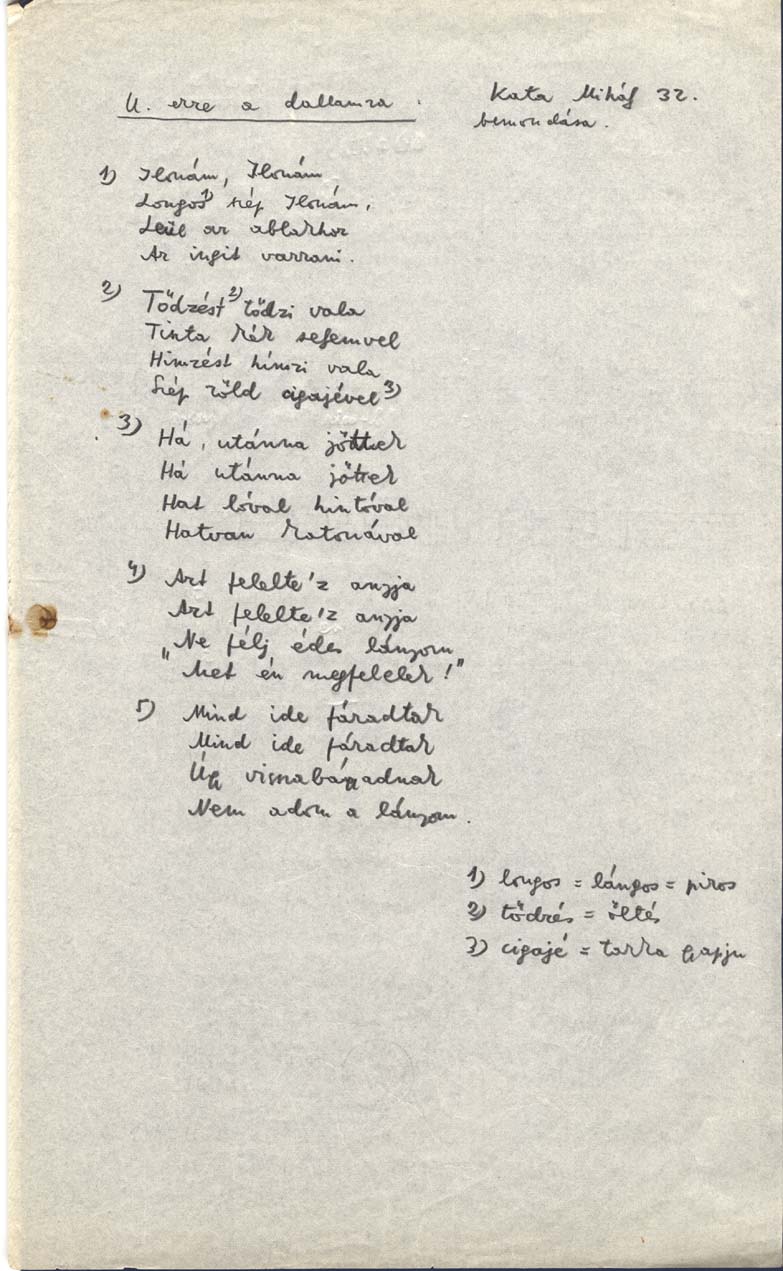 U. erre a dallamra.
Kata Mihály 32.
bemondása.
1) Ilonám, Ilonám
Longos¹⁾ szép Ilonám,
Leül az ablakhoz
Az ingit varrani.
2) Tődzést²⁾ tődzi vala
Tinta kék selemvel
Himzést hímzi vala
Szép zöld cigajével³⁾
3) Há, utánna jöttek
Há utánna jöttek
Hat lóval hintóval
Hatvan katonával
4) Azt felelte'z anyja
Azt felelte'z anyja
„Ne félj édes lányom
Met én megfelelek!"
5) Mind ide fáradtak
Mind ide fáradtak
Úgy visszabággyadnak
Nem adom a lányom.
1) longos = lángos = piros
2) tődzés = öltés
3) cigajé = tarka gyapju